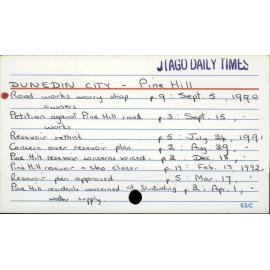 JTAGO DAILY TIMES
DUNEDIN CITY - Pine Hill
Road works worry shop p.9: Sept. 5, 1990
owners
Petition against Pine Hill road p.3: Sept. 15, "
works
Resevoir rethink p.5: July 24, 1991
Concern over resevoir plan p.2: Aug. 29, "
Pine Hill resevoir concerns voiced. p.2: Dec. 18, "
Pine Hill resevoir a step closer p.17: Feb. 13, 1992,
Resevoir plan approved p.5: Mar. 17, "
Pine Hill residents concerned at fluctuating p.2: Apr. 1, "
water supply.
53/C